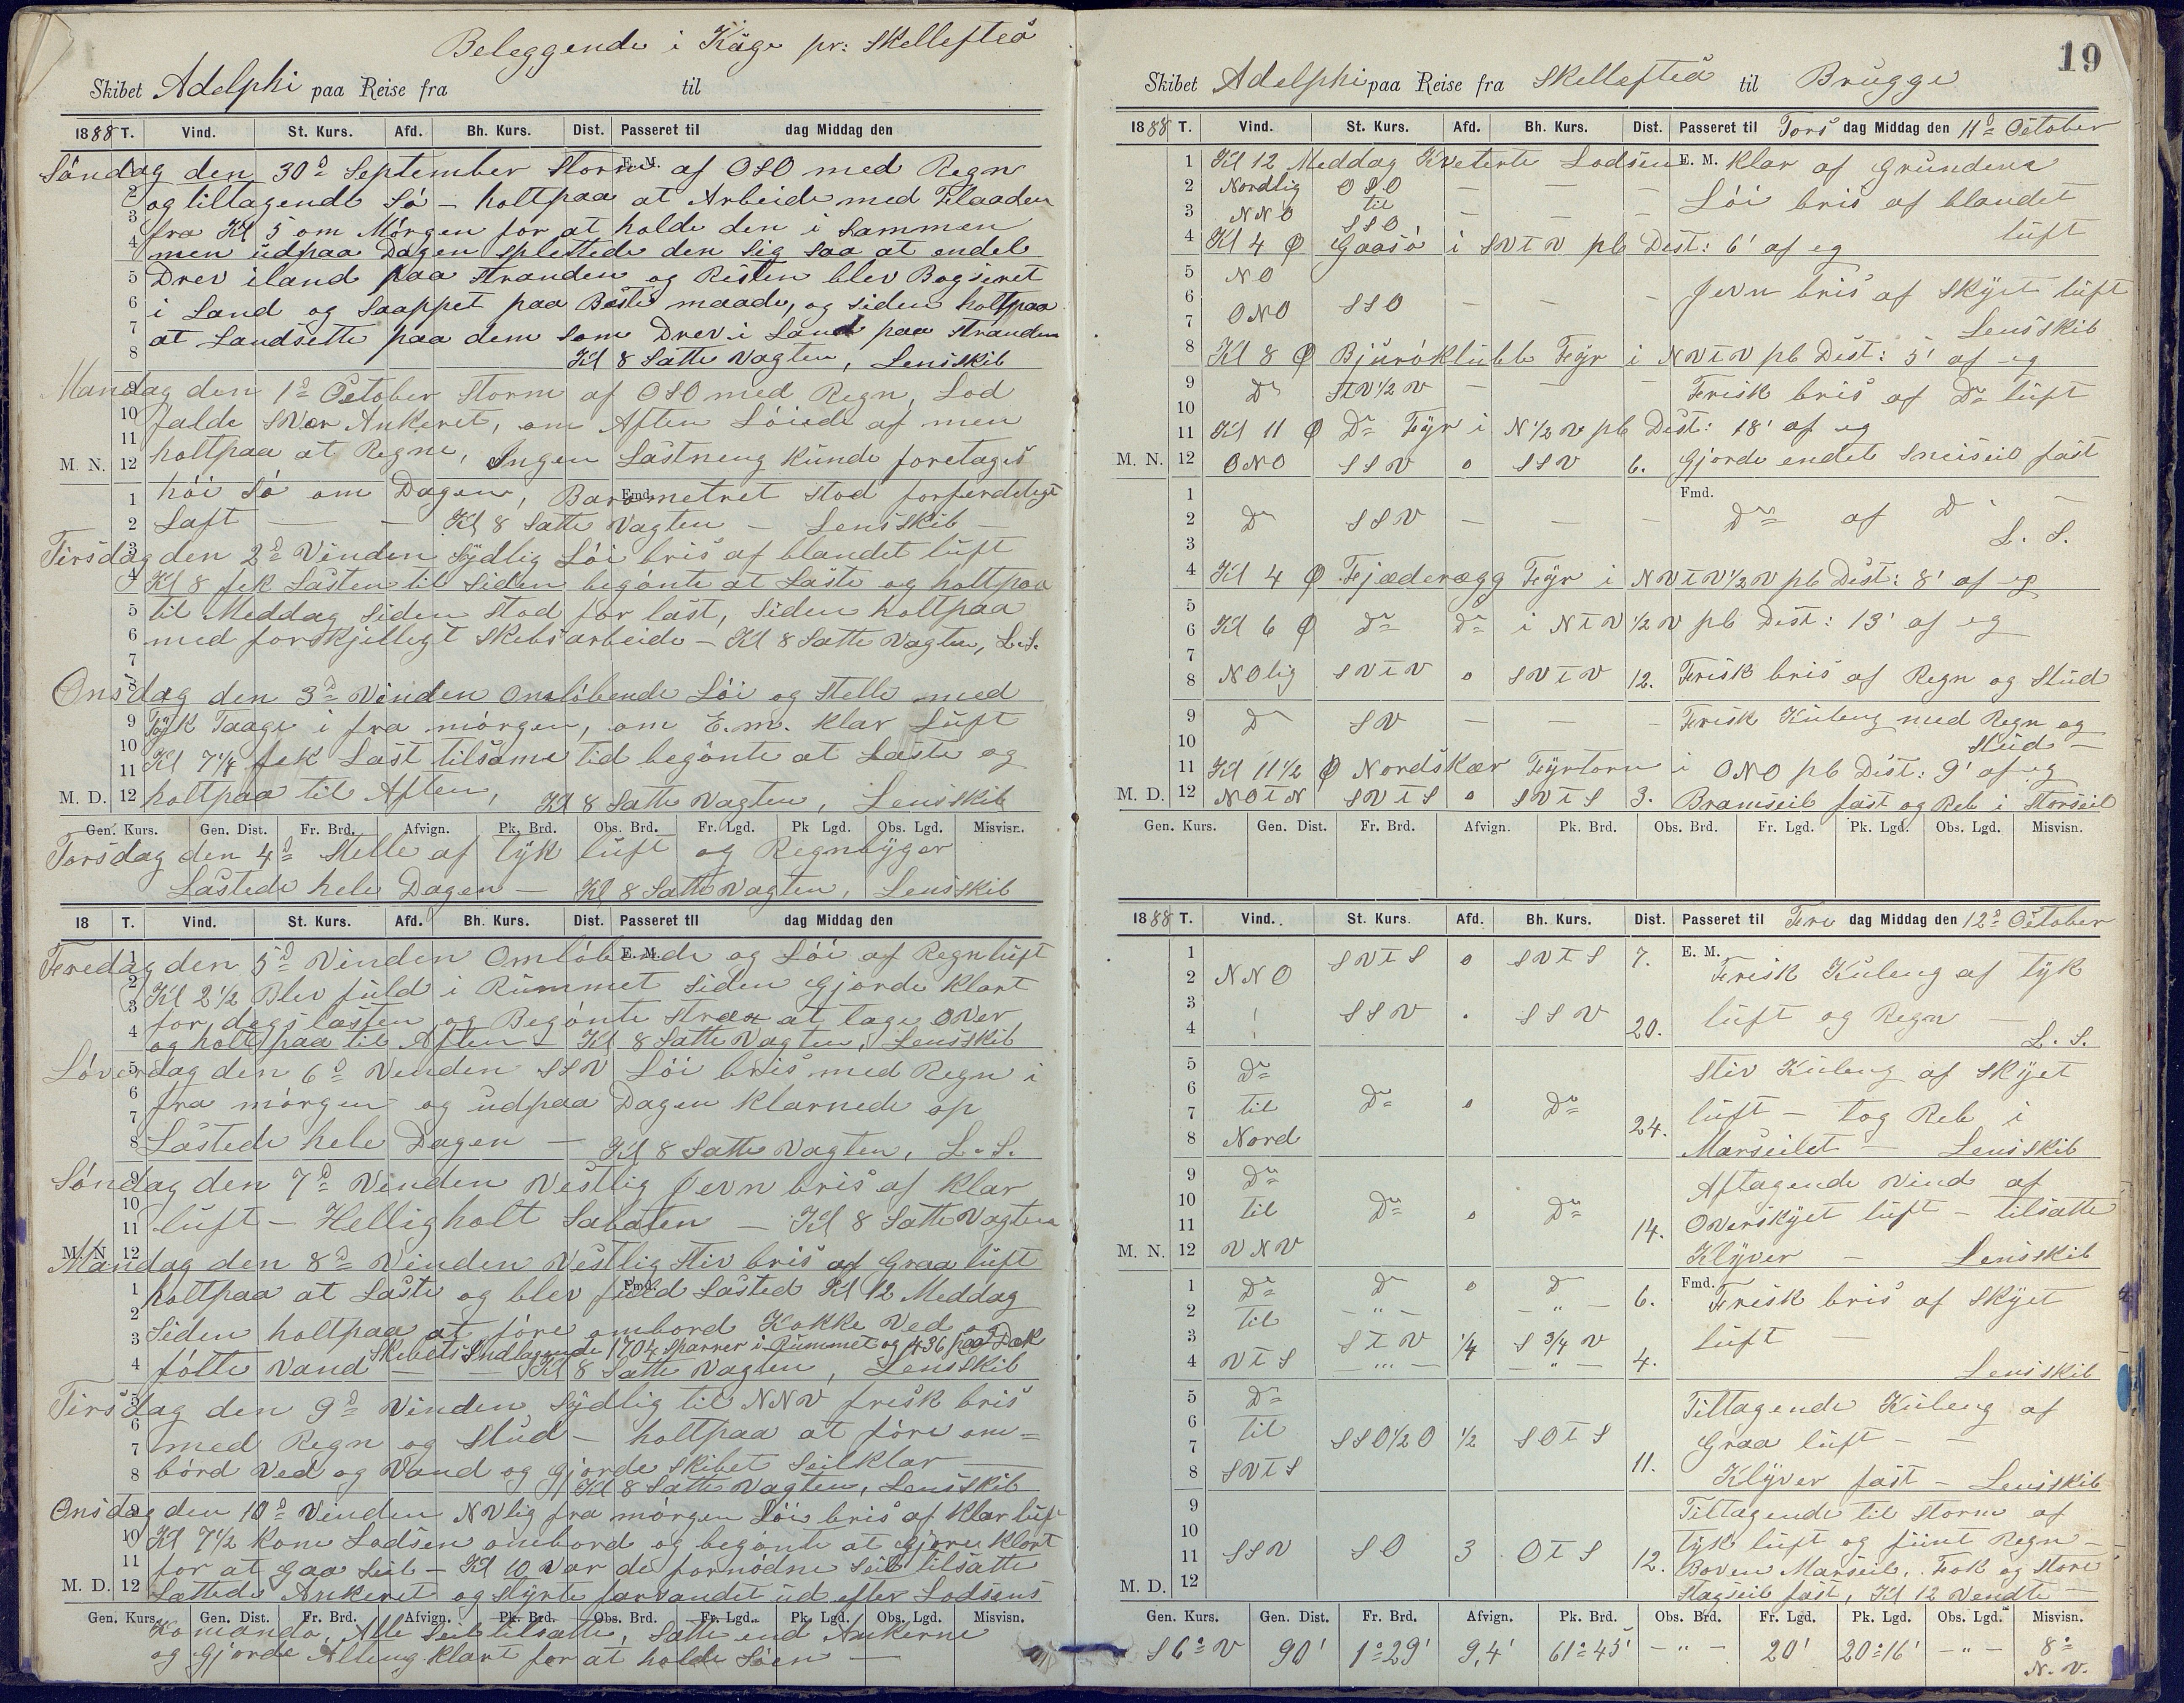 Beleggende i Kåge pr: Skellefteå
Skibet Adelphi paa Reise fra til
1888 T. Vind. St. Kurs. Afd. Bh. Kurs. Dist. Passeret til dag Middag den
Söndag den 30d September Storm af OSO med Regn
og tiltagende Sö - holtpaa at Arbeide med Flaaden
fra Kl 5 om Mörgen for at holde den i Sammen
men udpaa Dagen splettede den Sig saa at endel
Drev iland paa Stranden og Resten blev Bogseret
i Land og Saappet paa Beste maade, og siden holtpaa
at Landsette paa dem som Drev i Land paa Stranden
Kl 8 Satte Vagten, Lensskib
Mandag den 1d October Storm af OSO med Regn, Lod
falde Svær Ankeret, om Aften Löiede af men
holtpaa at Regne, Ingen Lastneng kunde foretages
höi Sö om Dagen, Barometret stod forferdeligt
Laft — Kl 8 Satte Vagten - Lensskib
Tirsdag den 2d Vinden Sydlig Löi bris af blandet luft
Kl 8 fek Lasten til Siden begönte at Laste og holtpaa
til Meddag siden stod for last, siden holtpaa
med forskjelligt Skebsarbeide - Kl 8 Satte Vagten, L.S.
Onsdag den 3d Vinden Omlöbende Löi og Stelle med
Tyk Taage i fra mörgen, om E.m. klar Luft
Kl 7 1/4 fek Last tilsame tid begönte at Laste og
holtpaa til Aften, Kl 8 Satte Vagten, Lensskib
M. N.
M. D.
Gen. Kurs. Gen. Dist. Fr. Brd. Afvign. Pk. Brd. Obs. Brd. Fr. Lgd. Pk Lgd. Obs. Lgd. Misvisn.
Torsdag den 4d Stelle af tyk luft og Regnbyger
Lastede hele Dagen - Kl 8 Satte Vagten, Lensskib
18 T. Vind. St. Kurs. Afd. Bh. Kurs. Dist. Passeret til dag Middag den
Fredag den 5d Vinden Omlöbende og Löi af Regnluft
Kl 2 1/2 Blev fuld i Rummet siden Gjorde klart
for degslasten og Begönte strax at tage over
og holt paa til Aften - Kl 8 Satte Vagten, Lensskib
Löverdag den 6d Vinden SSV Löi bris med Regn i
fra mörgen og udpaa Dagen klarnede op
Lastede hele Dagen — Kl 8 Satte Vagten, L.S.
Söndag den 7d Vinden Vestlig Jevn bris af klar
luft - Helligholt Sabaten - Kl 8 Satte Vagten
Mandag den 8d Vinden Vestlig Stiv bris af Graa luft
holtpaa at Laste og blev fuld Lasted Kl 12 Meddag
Siden holtpaa at före ombord Kokke Ved og
Skebets Indlagende 1704 Sparrer i Rummet og 436 paa Dæk
fölte Vand — Kl 8 Satte Vagten, Lensskib
Tirsdag den 9d Vinden Sydlig til NNV fresk bris
med Regn og Slud - holtpaa at före om=
bord Ved og Vand og gjorde skibet Seilklar
Kl 8 Satte Vagten, Lensskib
Onsdag den 10d Vinden NVlig fra mörgen Löi bris af klar luft
Kl 7 1/2 kom Lodsen ombord og begönte at gjøre klart
for at gaa Seil - Kl 10 var de fornödne Seil tilsatte
Lettede Ankeret og styrte farvandet ud efter Lodsens
Gen. Kurs. Gen. Dist. Fr. Brd. Afvign. Pk. Brd. Obs. Brd. Fr. Lgd. Pk. Lgd. Obs. Lgd. Misvisn.
Komando, Alle Seil tilsatte, Satte end Ankerne
og Gjorde Alting klart for at holde Söen —
19
Skibet Adelphi paa Reise fra Skellefteå til Brügge
1888 T. Vind. St. Kurs. Afd. Bh. Kurs. Dist. Passeret til Tors dag Middag den 11d October
1 Kl 12 Meddag Kveterte Lodsen E. M. klar af Grundene
2 Nordlig OSO — — — Löi bris af blandet
3 NNO til SSO — — — luft
4 Kl 4 Ø Gaasö i SVTV pb Dist: 6' af eg
5 NO
6 ONO SSO — — Jevn bris af skyet luft
7 Lensskib
8 Kl 8 Ø Bjuröklubb Fyr i NVTV pb Dist: 5' af eg
9 Do STV1/2V — — — Frisk bris af Do luft
10
11 Kl 11 Ø Do Fyr i N1/2V pb Dist: 18' af eg
M. N. 12 ONO SSV 0 SSV 6. Gjorde endel Sneiseil fast
1 Fmd.
2 Do SSV — — — Do af D
3 L. S.
4 Kl 4 Ø Fjæderægg Fyr i NVTV1/2V pb Dist: 8' af eg
5
6 Kl 6 Ø Do Do i NTV1/2V pb Dist: 13' af eg
7
8 NOlig SVTV 0 SVTV 12. Frisk bris af Regn og Slud
9 D SV — — — Frisk Kuleng med Regn og
10 Slud —
11 Kl 11 1/2 Ø Nordskær Fyrtorn i ONO pb Dist: 9' af eg
M. D. 12 NOTN SVTS 0 SVTS 3. Bramseil fast og Reb i Storseil
Gen. Kurs. Gen. Dist. Fr. Brd. Afvign. Pk. Brd. Obs. Brd. Fr. Lgd. Pk. Lgd. Obs. Lgd. Misvisn.
1888 T. Vind. St. Kurs. Afd. Bh. Kurs. Dist. Passeret til Fre dag Middag den 12d October
1 SVTS 0 SVTS 7. E. M.
2 NNO Frisk Kuleng af tyk
3 SSV . SSV luft og Regn —
4 20. L. S.
5 Do Stiv Kuleng af skyet
6
7 til Do 0 Do luft - tog Reb i
8 Nord 24. Marseilet — Lensskib
9 Do Aftagende vind af
10 til Do 0 Do Overskyet luft - tilsatte
11 14.
M. N. 12 VNV Klyver — Lensskib
1 Do D 0 D 6. Fmd. Frisk bris af skyet
2 til — " — — " —
3 STV 1/4 S 3/4 V luft —
4 VTS — " — — " — 4. Lensskib
5 Do Tiltagende Kuleng af
6 til SSO1/2O 1/2 SOTS Graa luft —
7
8 SVTS 11. Klyver fast - Lensskib
9 Tiltagende til Storm af
10 tyk luft og fiint Regn -
11 SSV SO 3 OTS 12. Boven Marseil, Fok og Store
M. D. 12 Stagseil fast, Kl 12 Vendte
Gen. Kurs. Gen. Dist. Fr. Brd. Afvign. Pk. Brd. Obs. Brd. Fr. Lgd. Pk. Lgd. Obs. Lgd. Misvisn.
S 6° V 90' 1°29' 9,4' 61°45' — " — 20' 20°16' — " — 8° N. V.